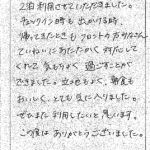 2泊利用させていただきました。
チェックイン時も出かける時、
帰ってきたときも フロントの方々がとても
ていねいに あたたかく 対応して
くれて 気もちよく 過ごすことが
できました。立地もよく、朝食も
おいしく、とても気に入りました。
ぜひまた利用したいと思います。
この度は ありがとうございました。